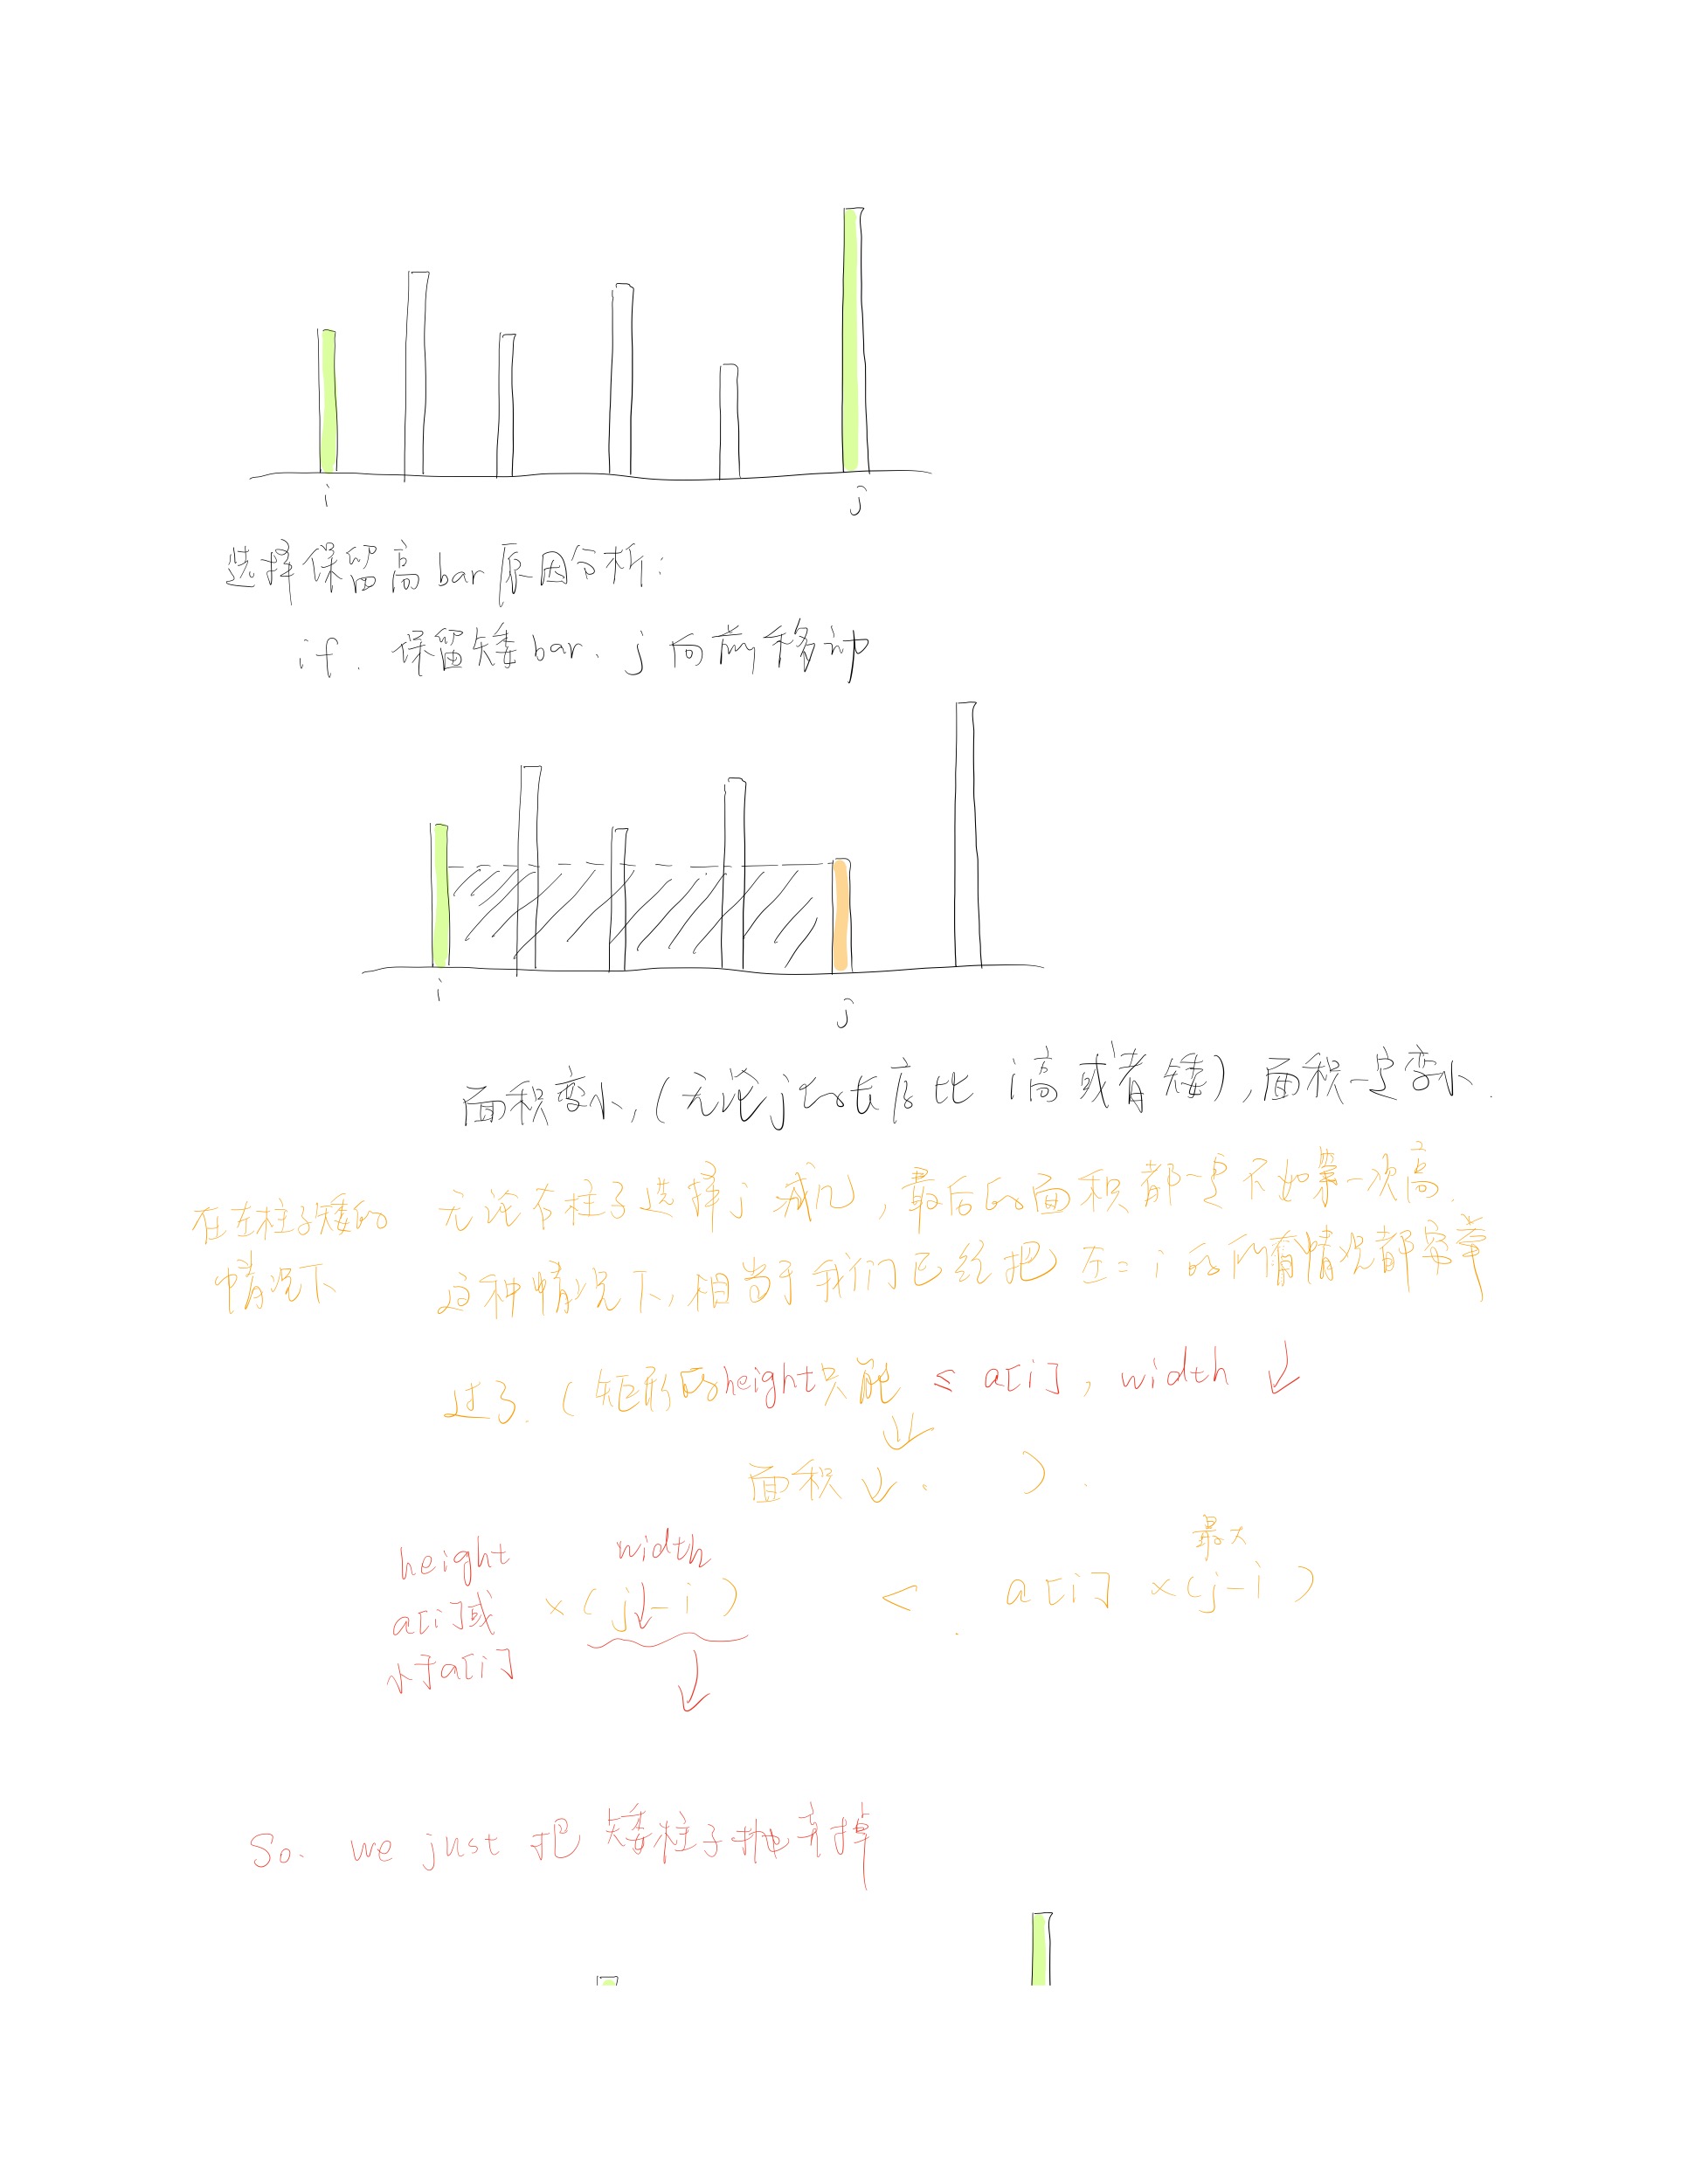 i
j
选择保留高bar原因分析:
if. 保留矮bar、j向前移动
i
j
面积变小,(无论j的长度比 i高或者矮),面积一定变小.
在左柱子矮的
情况下
无论右柱子选择j减几,最后的面积都一定不如第一次高.
这种情况下,相当于我们已经把左=i的所有情况都穷举
过了.(矩形的height只能 ≤ a[i], width ↓
⇓
面积↓. ).
height width 最大
a[i]或 ×(j↓-i) < a[i] ×(j-i)
小于a[i]
↓
So. we just 把 矮柱子抛弃掉